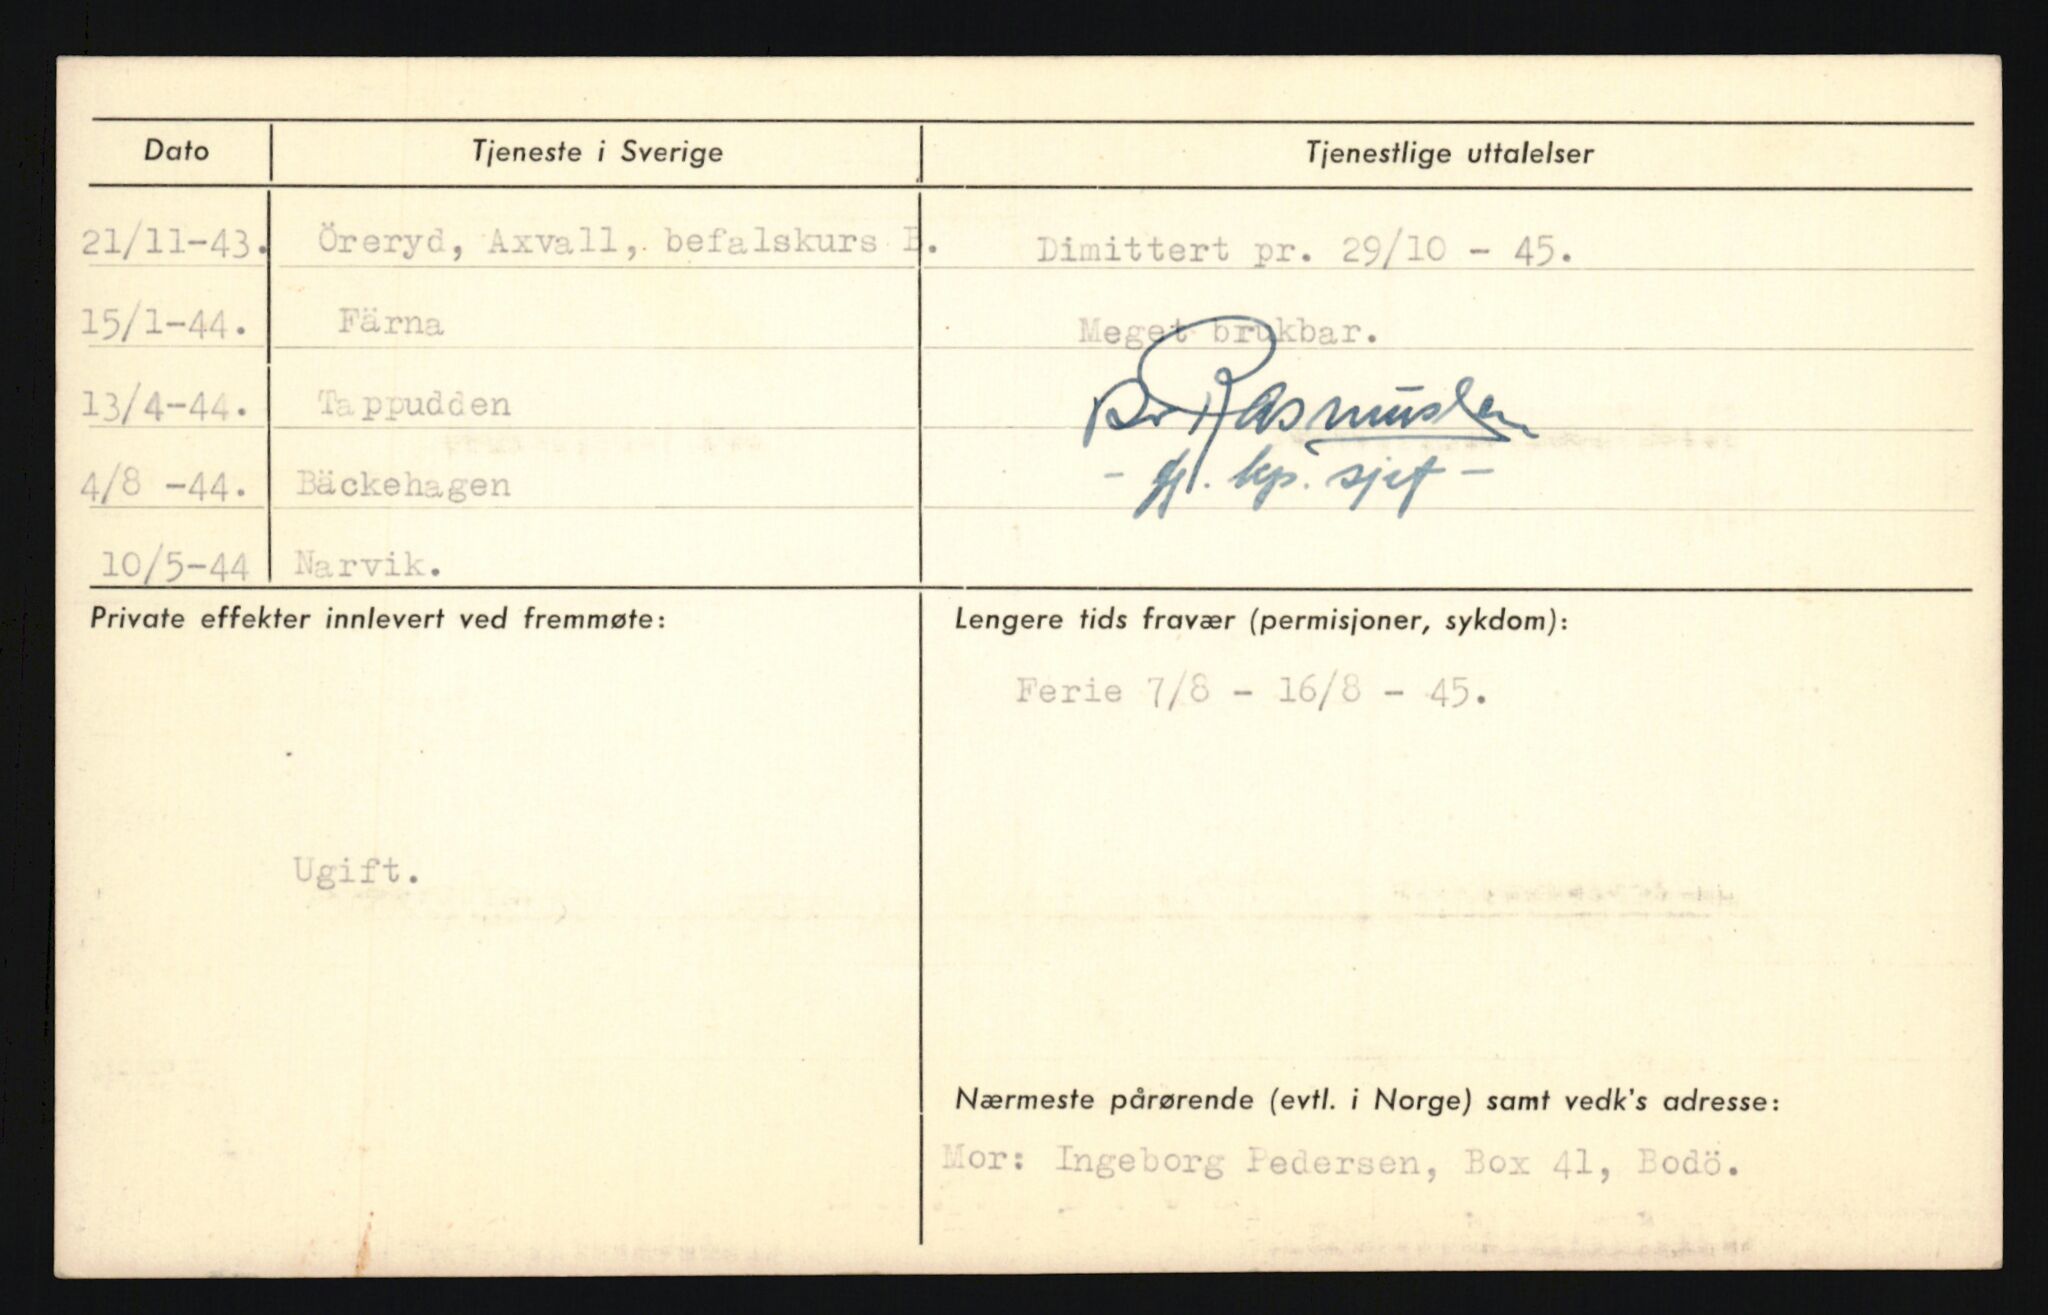 Dato Tjeneste i Sverige Tjenestlige uttalelser
21/11-43. Öreryd, Axvall, befalskurs B. Dimittert pr. 29/10 - 45.
15/1-44. Färna Meget brukbar.
13/4-44. Tappudden Rasmussen
4/8 -44. Bäckehagen - kp. sjef -
10/5-44 Narvik.
Private effekter innlevert ved fremmøte: Lengere tids fravær (permisjoner, sykdom):
Ferie 7/8 - 16/8 - 45.
Ugift.
Nærmeste pårørende (evtl. i Norge) samt vedk's adresse:
Mor: Ingeborg Pedersen, Box 41, Bodö.